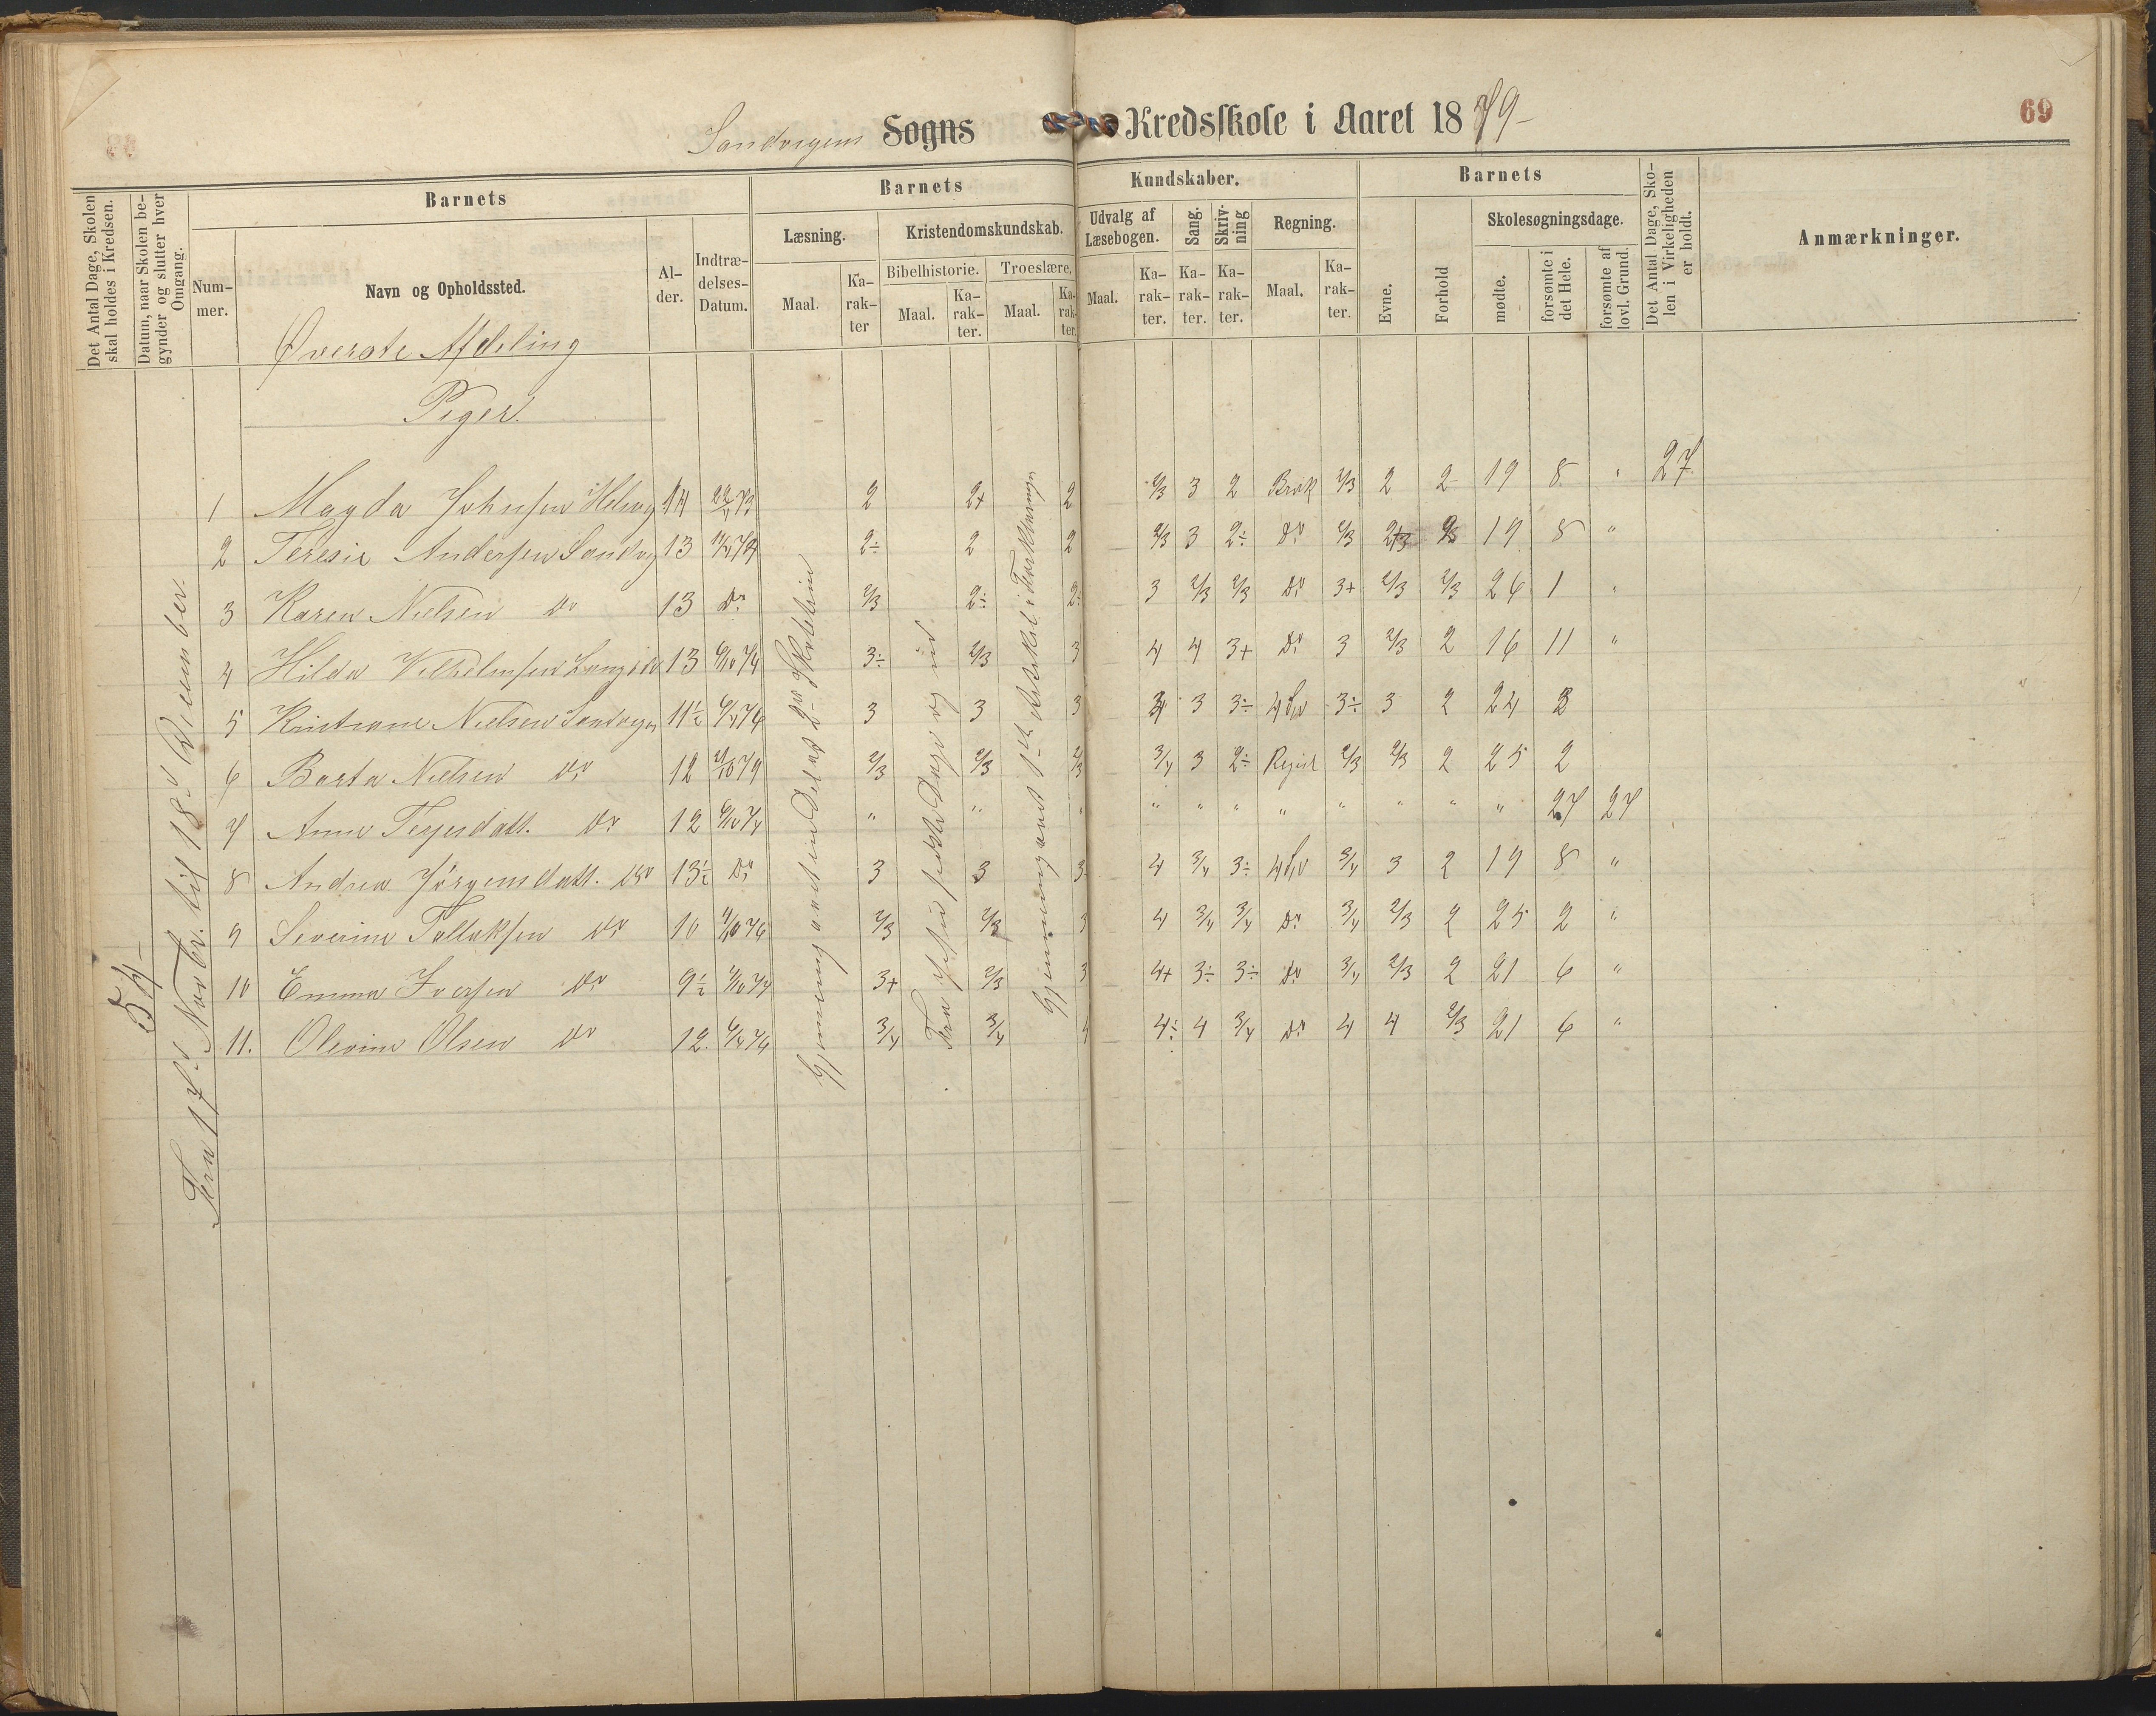 Sandvigens Sogns Kredsskole i Aaret 1879-
69
Det Antal Dage, Skolen skal holdes i Kredsen.
Datum, naar Skolen begynder og slutter hver Omgang.
Barnets
Nummer.
Navn og Opholdssted.
Alder.
Indtrædelses-Datum.
Barnets Kundskaber.
Læsning.
Maal.
Karakter
Kristendomskundskab.
Bibelhistorie.
Maal.
Karakter.
Troeslære.
Maal.
Karakter.
Udvalg af Læsebogen.
Maal.
Karakter.
Sang.
Karakter.
Skrivning
Karakter.
Regning.
Maal.
Karakter.
Barnets
Evne.
Forhold
Skolesøgningsdage.
mødte.
forsømte i det Hele.
forsømte af lovl. Grund.
Det Antal Dage, Skolen i Virkeligheden er holdt.
Anmærkninger.
Øverste Afdeling
Piger.
54
Fra 17d Novbr. til 18d December.
Gjennemgaaet en Del af 2det Skoletrin
Fra Jesu sidste Dage og ud
Gjennemgaaet 1ste Artikel i Forklaringen
1 Magda Johnsen 14 2 2+ 2 2/3 3 2 Brøk 2/3 2 2 19 8 " 27
2 Teresie Andersen Sandvig 13 2÷ 2 2 2/3 3 2÷ Do 2/3 19 8 "
3 Karen Nielsen Do 13 Do 2/3 2÷ 2÷ 3 2/3 2/3 Do 3+ 2/3 2/3 26 1 "
4 Hilda Vilhelmsen 13 6/10 74 3÷ 2/3 3 4 4 3+ Do 3 2/3 2 16 11 "
5 Kristiane Nielsen Sandvigen 11½ 3 3 3 3 3÷ 3÷ 3 2 24 3
6 Berta Nielsen Do 12 2/3 2/3 2/3 3/4 3 2÷ 2/3 2/3 2 25 2
7 Anne Terjesdatt. Do 12 " " " " " " " " " " " 27 27
8 Andrea Jörgensdatt. Do 13½ Do 3 3 3 4 3/4 3÷ 3/4 3 2 19 8 "
9 Severine Tellaksen Do 10 2/3 2/3 3 4 3/4 3/4 Do 3/4 2/3 2 25 2 "
10 Emma Iversen Do 9½ 3+ 2/3 3 4+ 3÷ 3÷ Do 3/4 2/3 2 21 6 "
11. Olevine Olsen Do 12. 3/4 3/4 4 4÷ 4 3/4 Do 4 4 2/3 21 6 "